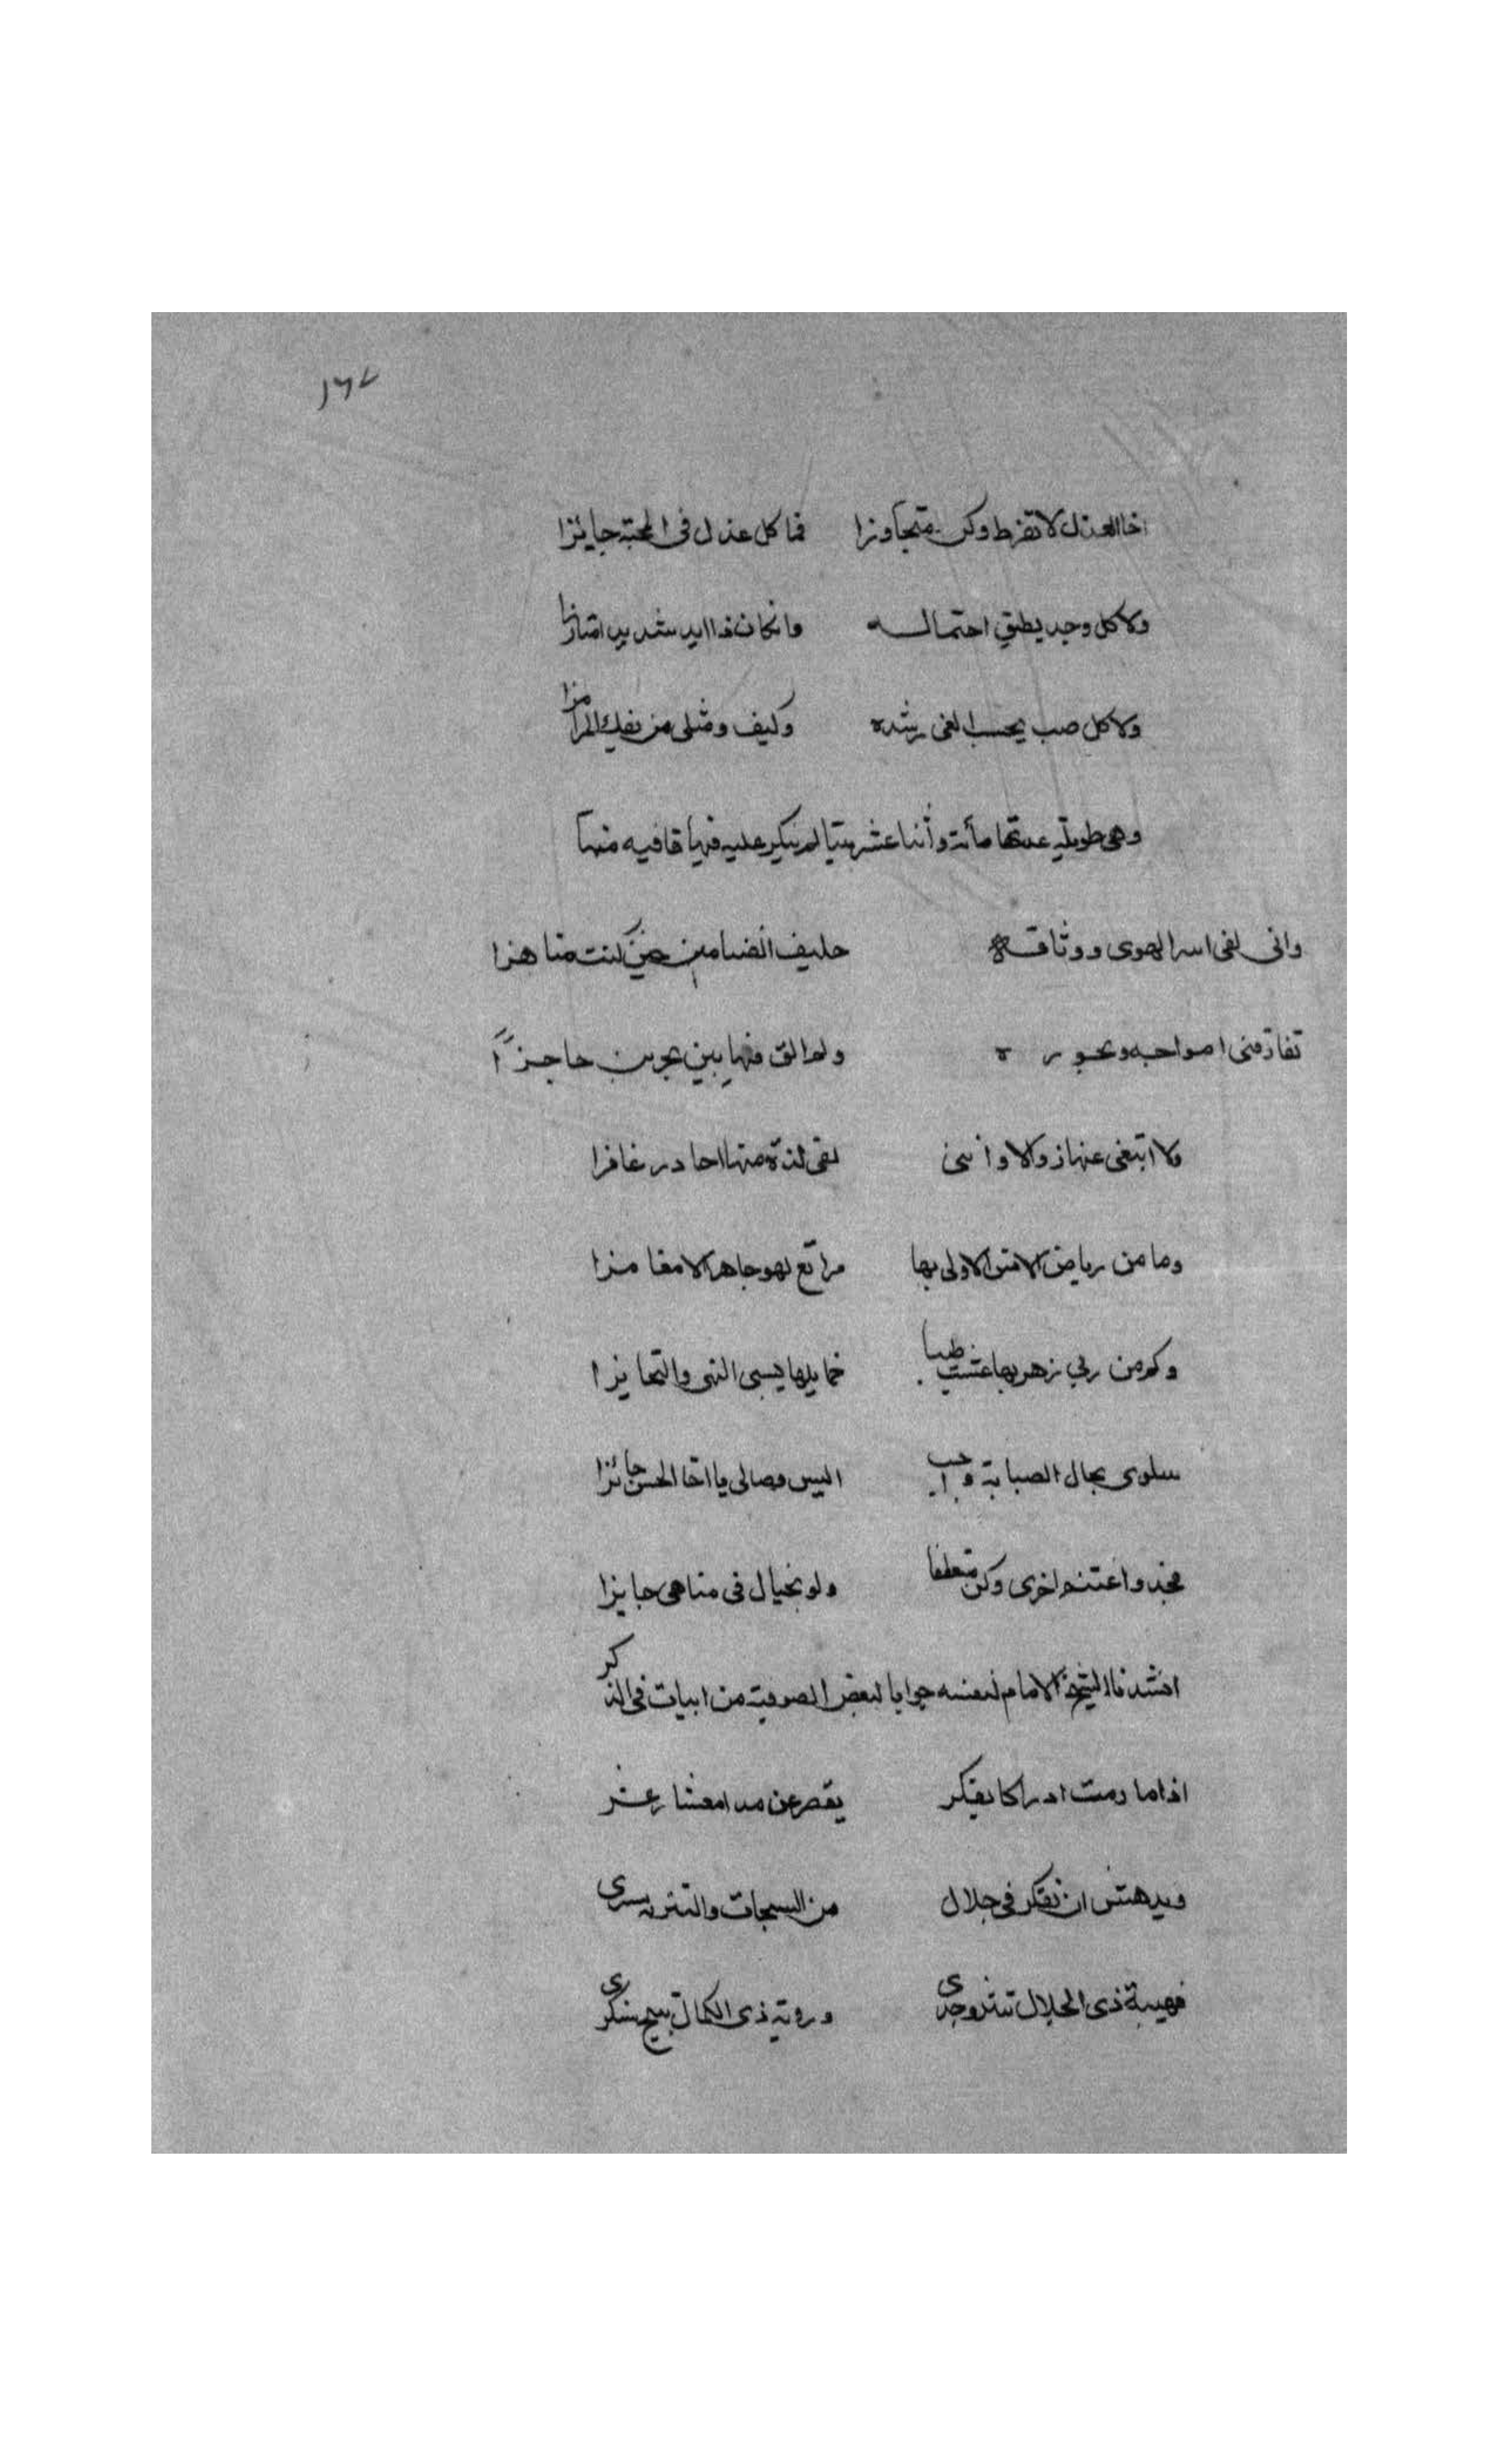 ١٦٧
اخا العذل لا تفرط وكن متجاوزا فما كل عذل في المحبة جايئزا
ولا كل وجد يطيق احتماله وانكان ذا ايد شديد
ولا كل صب يحسب الغى رشده وكيف ومثلى من يفك المرامزا
وهى طويلة عدتها مأتة وأثنا عشر بيتا لم يتكرر عليه فيها قافيه منها
وانى لفى اسر الهوى ووثاقه حليف الضنا من حين كنت مناهزا
تقاذفنى امواجه وبحوره ولم الق فيها بين بحرين حاجزًا
ولا ابتغى عنها زوالا وأننى لفى لذة منها احادر غافزا
وما من رياض الامن الاولى بها مراتع لهو جاهر الا مغامزا
وكم من ربي زهر بها عشت ظبا خمايلها يسبى النهى والتحايزا
سلوى بحال الصبابة واجب اليس وصالى يا اخا الحسن جائزا
فجد واغتنم اخرى وكن متعطفا ولو بخيال فى منامى جايزا
انشدنا الشيخ الامام لنفسه جوابا لبعض الصوفية من ابيات فى الذكر
اذا ما رمت ادراكا بفكر يقصر عن مدا معشار عشر
ويدهش ان تفكر فى جلال من السبحات والتنزيه يسرى
فهيبة ذى الجلال تثير وجدى ورؤية ذى الكمال تبيح سكرى